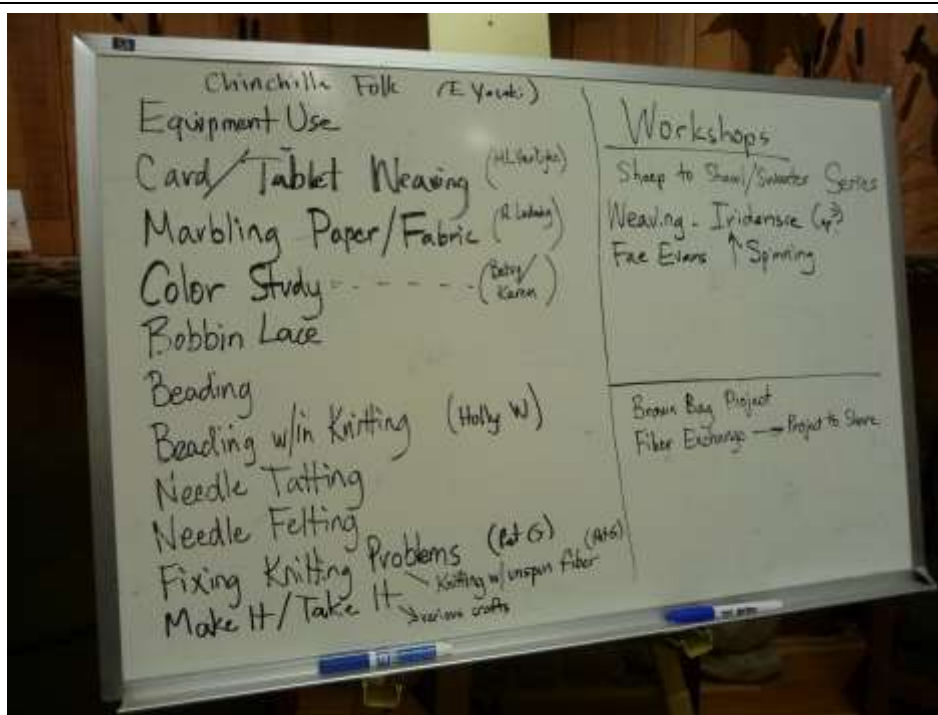 Chinchilla Folk (E Yasaki)
Equipment Use
Card/Tablet Weaving
Marbling Paper/Fabric (R Ludwig)
Color Study - - - - - - (Betsy/Karen)
Bobbin Lace
Beading
Beading w/in Knitting (Holly W)
Needle Tatting
Needle Felting
Fixing Knitting Problems (Pat G)
Knitting w/unspun fiber (Pat G)
Make It/Take It
various crafts
Workshops
Sheep to Shawl/Sweater Series
Weaving - Iridensce
Fae Evans ↑ Spinning
Brown Bag Project
Fiber Exchange → Project to Share